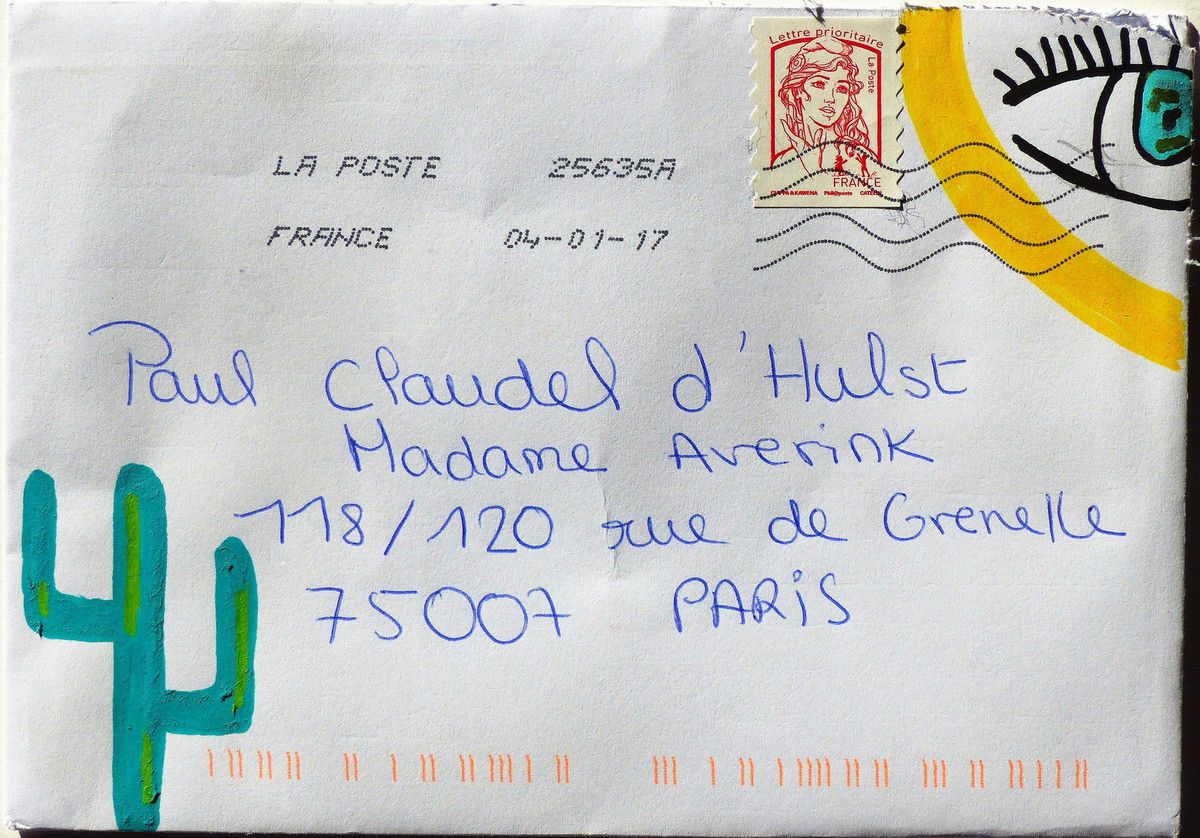 Lettre prioritaire
La Poste
FRANCE
CIAPPA & KAWENA Phil@poste
LA POSTE 25635A
FRANCE 04-01-17
Paul Claudel d'Hulst
Madame Averink
118/120 rue de Grenelle
75007 PARiS